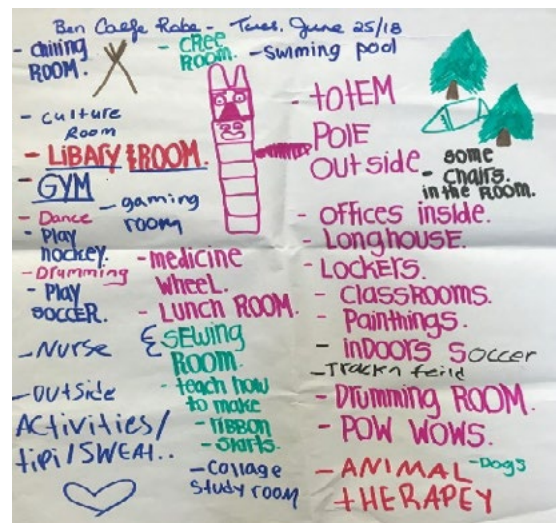 Ben Calf Robe - Tues. June 25/18
- chiling
ROOM.
- CREE
ROOM.
- Swiming pool
- culture
Room
- LiBARY & ROOM.
- GYM
- Dance
- Play
hockey.
- Drumming
- Play
SOCCER.
- Nurse
- outside
Activities/
tipi/SWEAT..
- gaming
room
- medicine
wheel.
- LUNCH ROOM.
- SEwing
ROOM.
- teach how
to make
- ribbon
- skirts.
- collage
study room
- totEM
POlE
outside.
some
- chairs.
in the ROOM.
- offices inside.
- Longhouse.
- Lockers.
- Classrooms.
- Painthings.
- inDOORS Soccer
- Track n feild
- Drumming ROOM.
- POW WOWS.
- ANIMAL - Dogs
tHERAPEY